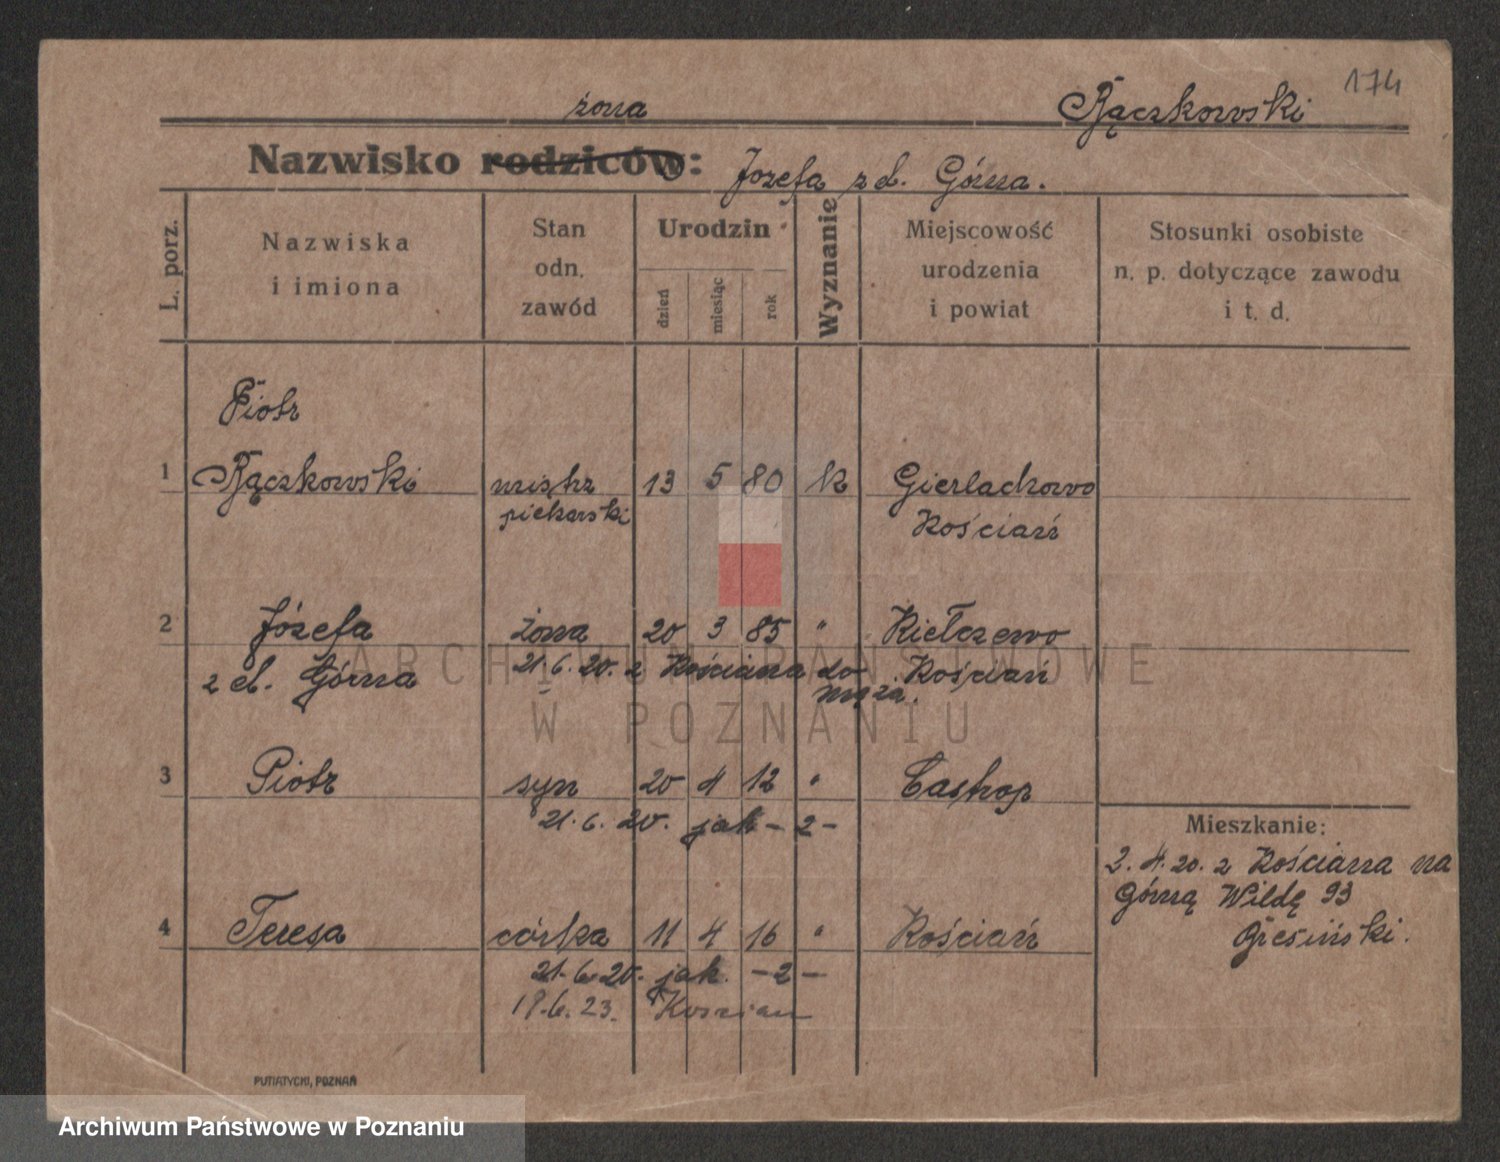 174
żona Rączkowski
Nazwisko rodziców: Józefa z d. Górna.
L. porz.
Nazwiska
i imiona
Stan
odn.
zawód
Urodzin
dzień
miesiąc
rok
Wyznanie
Miejscowość
urodzenia
i powiat
Stosunki osobiste
n. p. dotyczące zawodu
i t. d.
Piotr
1 Rączkowski mistrz 13 5 80 k Gierlachowo
piekarski Kościan
2 Józefa żona 20 3 85 " Kiełczewo
z d. Górna 21.6.20. z Kościana do Kościań
męża.
3 Piotr syn 20 4 12 " Castrop
21.6.20. jak -2-
Mieszkanie:
2.4.20. z Kościana na
Górną Wildę 93
4 Teresa córka 11 4 16 " Kościań
21.6.20. jak -2-
19.6.23. Koscian
PUTIATYCKI, POZNAŃ
ARCHIWUM PAŃSTWOWE
W POZNANIU
Archiwum Państwowe w Poznaniu